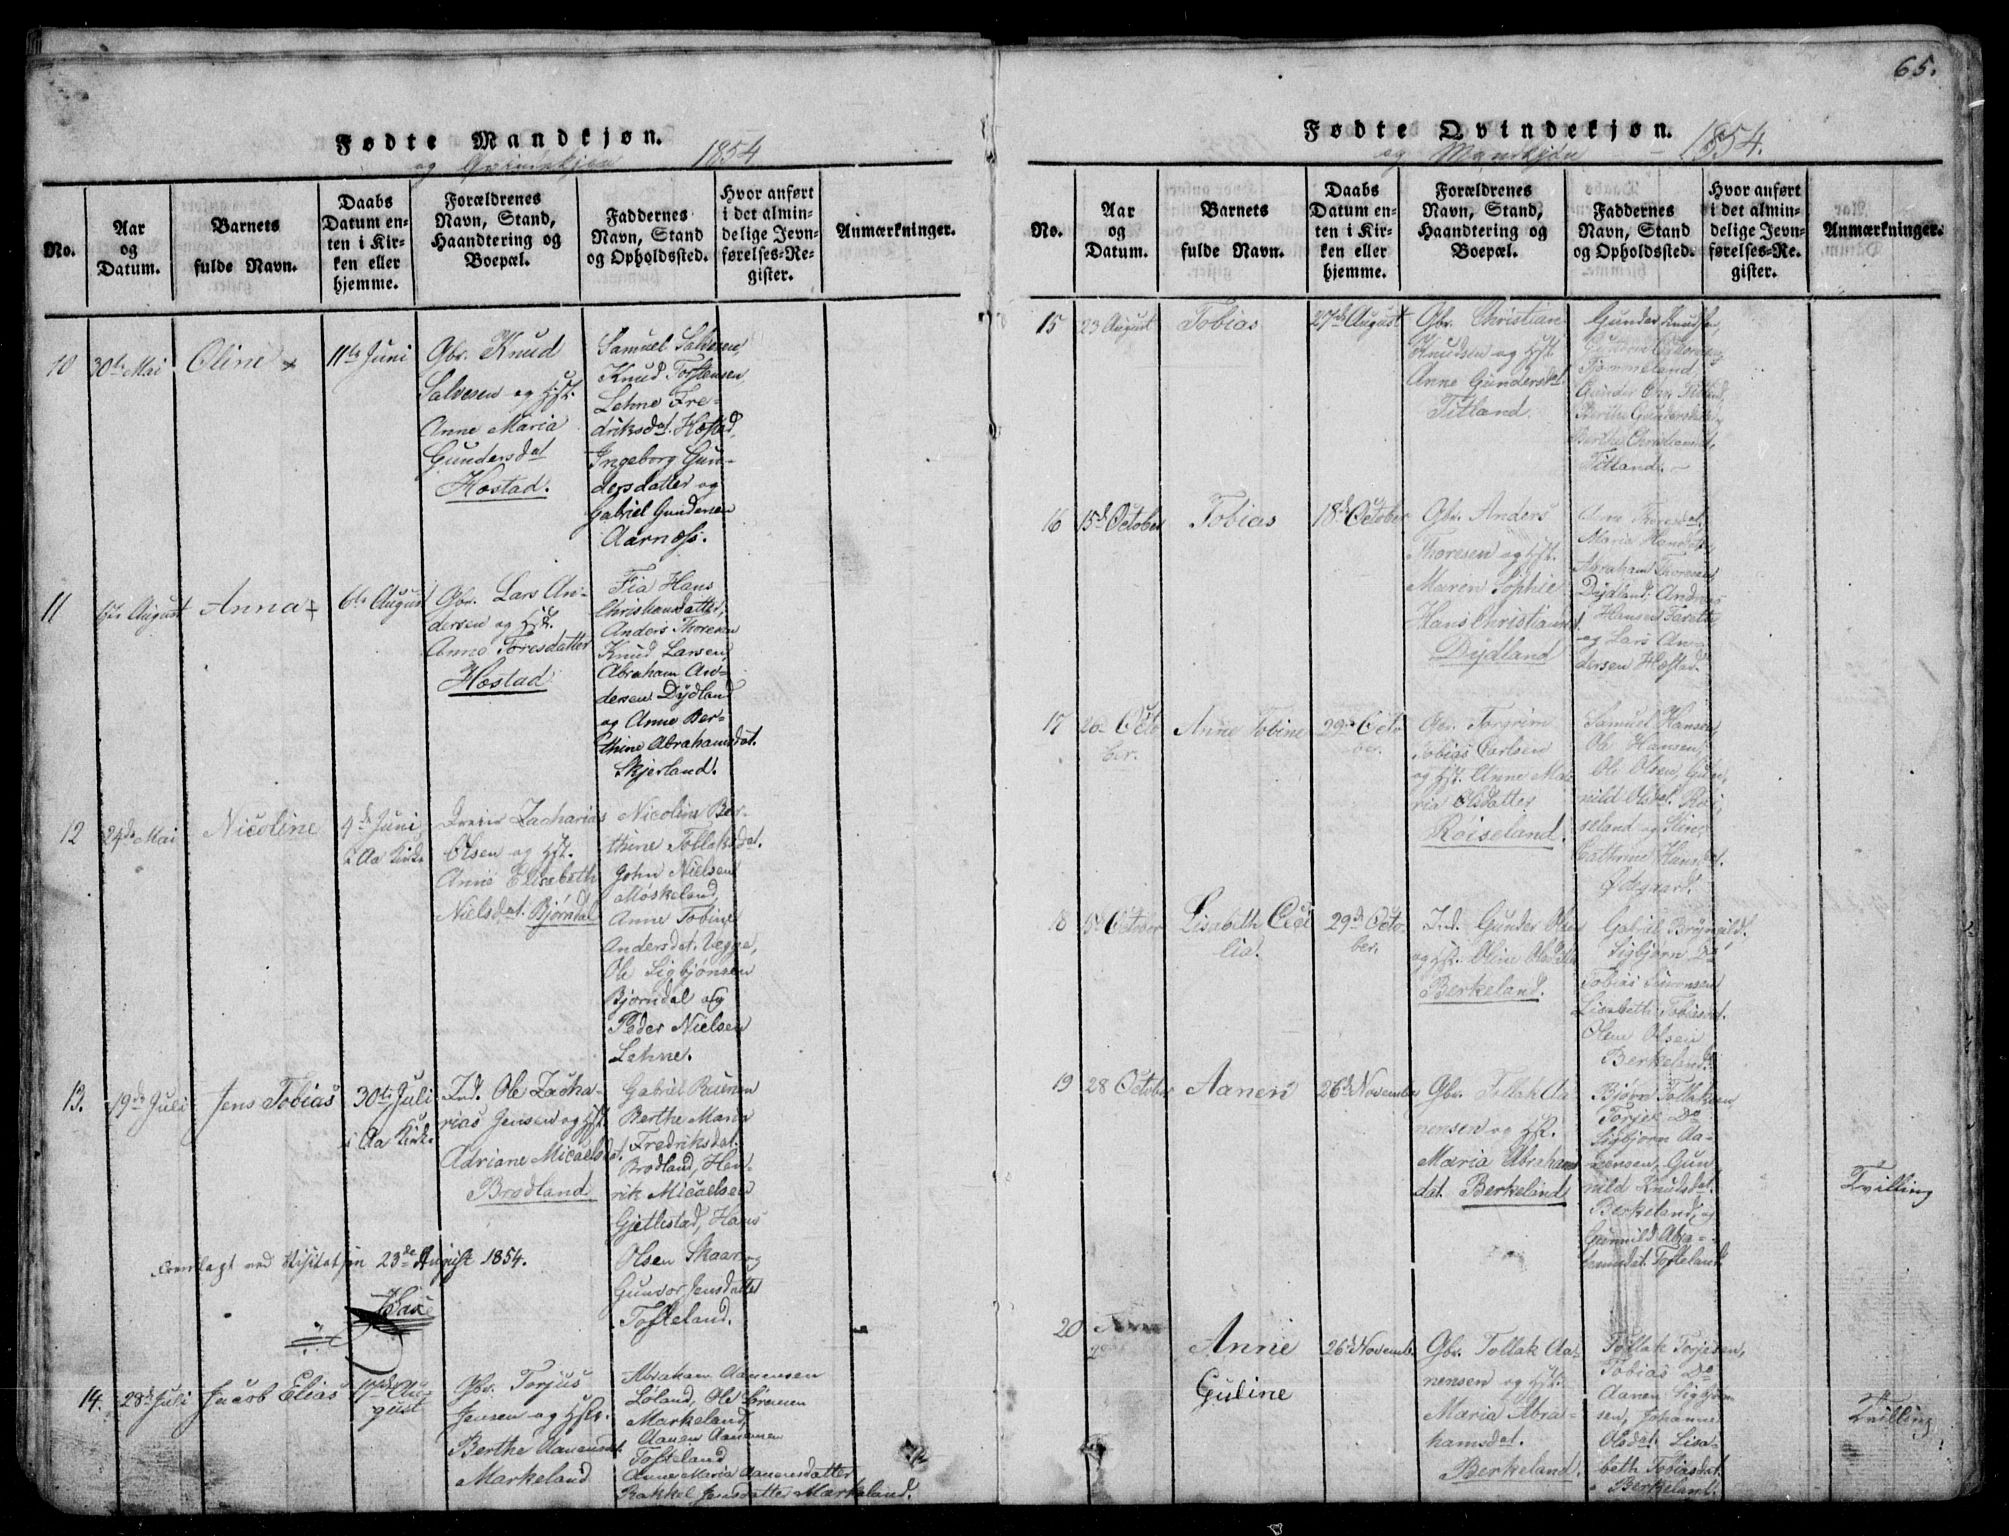 65.
Fødte Mandkjøn.
og Qvindekjøn 1854
No.
Aar
og
Datum.
Barnets
fulde Navn.
Daabs
Datum en-
ten i Kir-
ken eller
hjemme.
Forældrenes
Navn, Stand,
Haandtering og
Boepæl.
Faddernes
Navn, Stand
og Opholdssted.
Hvor anført
i det almin-
delige Jevn-
førelses-Re-
gister.
Anmærkninger.
10
30te Mai
Oline
11te Juni
Gbr. Knud
Salvesen og Hst.
Anne Maria
Gundersdat
Høstad.
Samuel Salvesen,
Knud Torstensen,
Lehne Fre-
driksdat. Høstad,
Ingeborg Gun-
dersdatter og
Gabriel Gundersen
Aarnæss.
11
August
Anna
6te August
Gbr. Lars An-
dersen og Hst.
Anne Toresdatter
Høstad
Fia Hans
Christiansdatter,
Anders Thoresen
Knud Larsen,
Abraham An-
dersen Dydland
og Anne Ber-
thine Abrahamsdat.
Skjerland.
12
24de Mai
Nicoline
4de Juni
i Aa Kirke
Zacharias
Olsen og Hst.
Anne Elisabeth
Nielsdat. Bjørndal
Nicoline Ber-
thine Tollaksdat.
John Nielsen
Møskeland,
Anne Tobine
Andersdat. Vegge,
Ole Sigbjørnsen
Bjørndal og
Peder Nielsen
Lehne.
13.
19de Juli
Jens Tobias
30te Juli
i Aa Kirke
Ind. Ole Zacha-
rias Jensen og Hst.
Adriane Micaelsdat.
Brødland
Gabriel
Berthe Maria
Fredriksdat.
Brødland, Hen-
rik Micaelsen
Gjetlestad, Hans
Olsen Skaar og
Gunvor Jensdatter
Tofteland.
Fremlagt ved Visitatsen 23de August 1854.
14.
28de Juli
Jacob Elias
17de Au-
gust
Gbr. Torjus
Jensen og Hst.
Berthe Aanensdat.
Markeland
Abraham Aanensen
Løland, Ole Sørensen
Markeland,
Aanen Aanensen
Tofteland
Anne Maria Aanensdatter
Rakkel Jensdatter Markeland.
Fødte Qvindekjøn.
og Mandkjøn 1854.
No.
Aar
og
Datum.
Barnets
fulde Navn.
Daabs
Datum en-
ten i Kir-
ken eller
hjemme.
Forældrenes
Navn, Stand,
Haandtering og
Boepæl.
Faddernes
Navn, Stand
og Opholdssted.
Hvor anført
i det almin-
delige Jevn-
førelses-Re-
gister.
Anmærkninger.
15
23 August
Tobias
27de August
Gbr. Christian
Knudsen og Hst.
Anne Gundersdat
Titland
Gunder Knudsen,
Tjømmeland
Gunder Chr. Titland,
Berthe Gundersdat.,
Berthe Christiansdat.
Titland.
16
15de October
Tobias
18de October
Gbr. Anders
Thoresen og Hst.
Maren Sophie
Hans Christiansd.
Dydland
Anne Thoresdat.
Maria Hansdat.
Abraham Thoresen
Dydland, Andreas
Hansen
og Lars An-
dersen Høstad.
17
26 Octo-
ber.
Anne Tobine
29de Octo-
ber.
Gbr. Torgrim
Tobias Carlsen
og Hst. Anne Ma-
ria Olsdatter
Røiseland.
Samuel Hansen,
Ole Hansen,
Ole Olsen, Gun-
nild Olsdat. Røi-
seland og Stine
Cathrine Hansdat.
Ødegaard.
18
5de October
Lisabeth Ceci-
lia.
29de Octo-
ber.
Ind. Gunder Olsen
og Hst. Oline Olsdatter
Berkeland.
Gabriel Brynild.
Sigbjørn Do
Tobias Simonsen
Lisabeth Tobiasdat.
Olsen
Berkeland.
19
28 October
Aanen
26de November
Gbr. Tollak Aa-
nensen og Hst.
Maria Abrahams-
dat. Berkeland
Bjørn Tollaksen,
Torjer Do
Sigbjørn Aa-
nensen, Gun-
nild Knudsdat.
Berkeland, og
Gunnild Abra-
hamsdat. Tofteland.
Tvilling
20
Anne
Guline
26de Novemb.
Gbr. Tollak Aa-
nensen og Hst.
Maria Abra-
hamsdat.
Berkeland.
Tollak Torjesen,
Tobias Do
Aanen Sigbjørn-
sen, Johanne
Olsdat. Lisa-
beth Tobiasdat.
Berkeland.
Tvilling